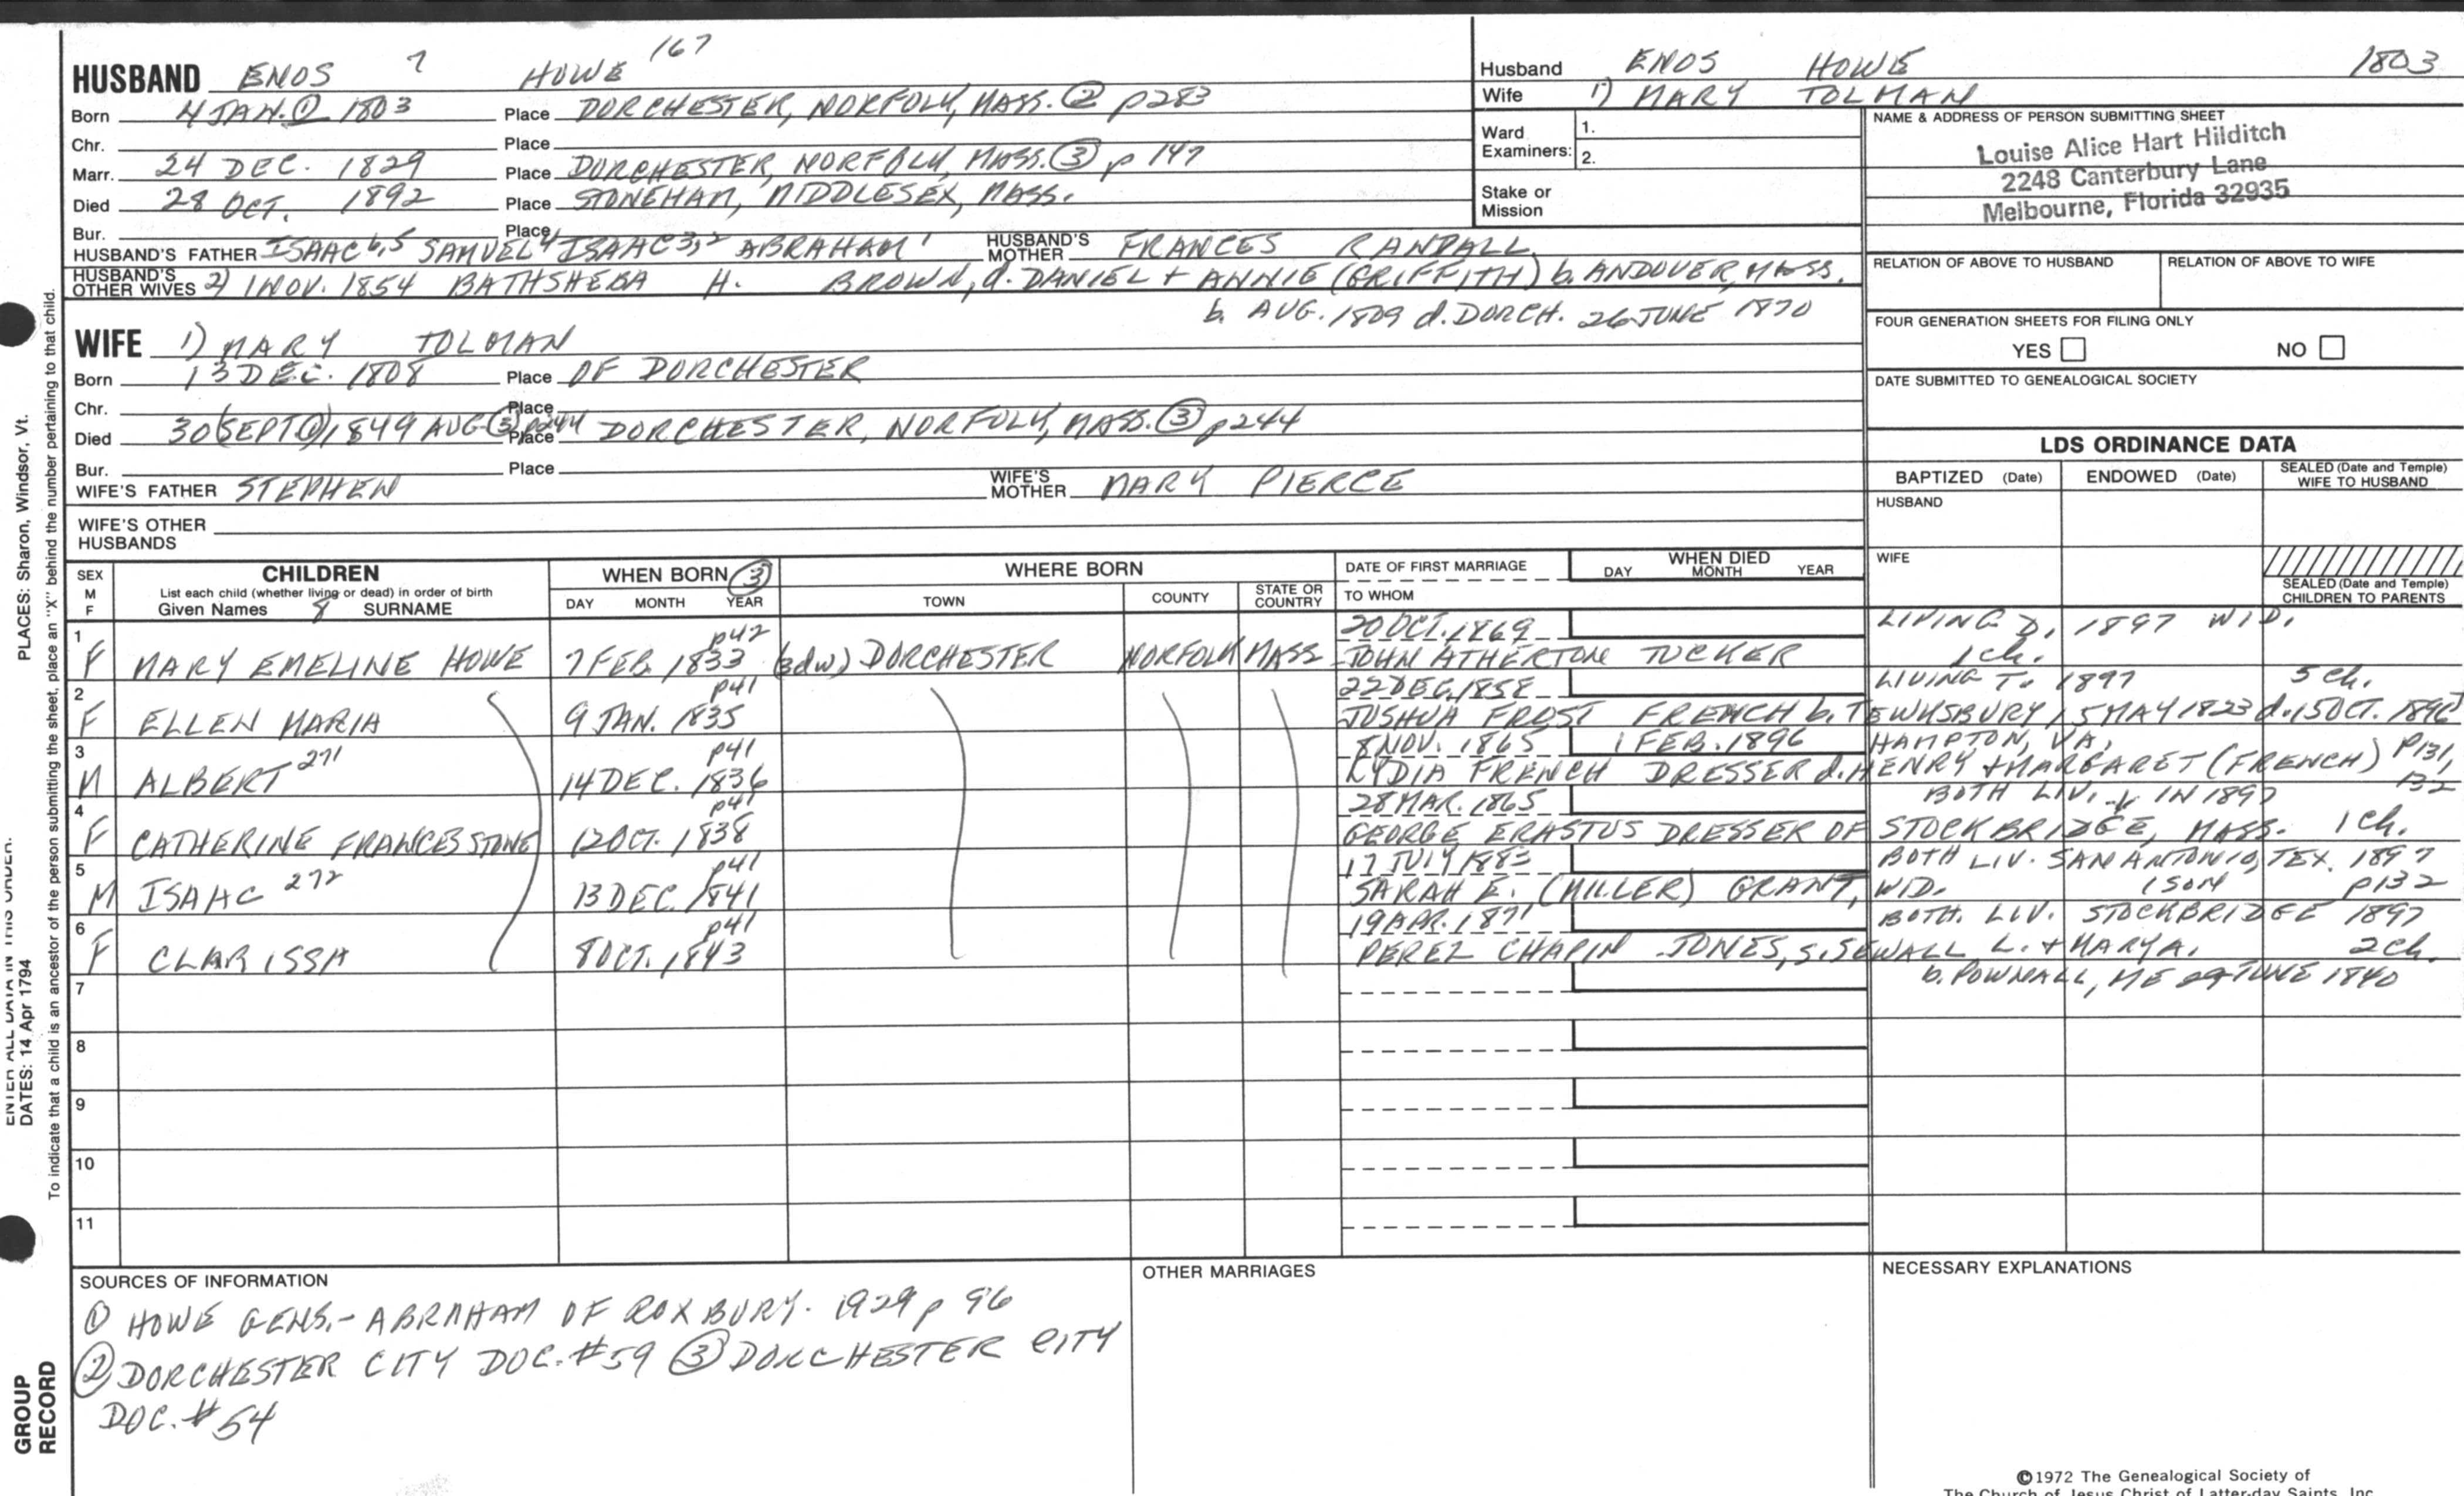 HUSBAND ENOS 7 HOWE 167
Born 4 JAN. ① 1803 Place DORCHESTER, NORFOLK, MASS. ② p283
Chr. Place
Marr. 24 DEC. 1829 Place DORCHESTER, NORFOLK, MASS. ③ p 147
Died 28 OCT. 1892 Place STONEHAM, MIDDLESEX, MASS.
Bur. Place
HUSBAND'S FATHER ISAAC 6,5 SAMUEL 4 ISAAC 3,2 ABRAHAM 1 HUSBAND'S MOTHER FRANCES RANDALL
HUSBAND'S OTHER WIVES 2) 1 NOV. 1854 BATHSHEBA H. BROWN, d. DANIEL + ANNIE (GRIFFITH) b. ANDOVER, MASS.
b. AUG. 1809 d. DORCH. 26 JUNE 1870
WIFE 1) MARY TOLMAN
Born 13 DEC. 1808 Place OF DORCHESTER
Chr. Place
Died 30 (SEPT ①) 1849 AUG ③ p244 Place DORCHESTER, NORFOLK, MASS. ③ p244
Bur. Place
WIFE'S FATHER STEPHEN WIFE'S MOTHER MARY PIERCE
WIFE'S OTHER HUSBANDS
Husband ENOS HOWE 1803
Wife 1) MARY TOLMAN
Ward Examiners: 1.
2.
Stake or Mission
NAME & ADDRESS OF PERSON SUBMITTING SHEET
Louise Alice Hart Hilditch
2248 Canterbury Lane
Melbourne, Florida 32935
RELATION OF ABOVE TO HUSBAND RELATION OF ABOVE TO WIFE
FOUR GENERATION SHEETS FOR FILING ONLY
YES NO
DATE SUBMITTED TO GENEALOGICAL SOCIETY
LDS ORDINANCE DATA
BAPTIZED (Date) ENDOWED (Date) SEALED (Date and Temple) WIFE TO HUSBAND
HUSBAND
WIFE
SEALED (Date and Temple) CHILDREN TO PARENTS
SEX M F CHILDREN WHEN BORN ③ WHERE BORN DATE OF FIRST MARRIAGE WHEN DIED
List each child (whether living or dead) in order of birth
Given Names 8 SURNAME DAY MONTH YEAR TOWN COUNTY STATE OR COUNTRY TO WHOM DAY MONTH YEAR
1 p42 20 OCT. 1869 LIVING D. 1897 WID.
F MARY EMELINE HOWE 7 FEB. 1833 (3dw) DORCHESTER NORFOLK MASS JOHN ATHERTON TUCKER 1 ch.
2 p41 22 DEC. 1858 LIVING T. 1897 5 ch.
F ELLEN MARIA 9 JAN. 1835 JOSHUA FROST FRENCH b. TEWKSBURY 15 MAY 1823 d. 15 OCT.
3 p41 8 NOV. 1865 1 FEB. 1896 HAMPTON, VA.
M ALBERT 271 14 DEC. 1836 LYDIA FRENCH DRESSER d. HENRY + MARGARET (FRENCH) P131, 132
4 p41 28 MAR. 1865 BOTH LIV. IN 1897
F CATHERINE FRANCES STONE 12 OCT. 1838 GEORGE ERASTUS DRESSER OF STOCKBRIDGE, MASS. 1 ch.
5 p41 17 JULY 1883 BOTH LIV. SAN ANTONIO, TEX. 1897
M ISAAC 272 13 DEC. 1841 SARAH E. (MILLER) GRANT, WID. 1 SON p132
6 p41 19 APR. 1871 BOTH. LIV. STOCKBRIDGE 1897
F CLARISSA 8 OCT. 1843 PEREZ CHAPIN JONES, s. SEWALL L. + MARY A. 2 ch.
b. POWNALL, ME 29 JUNE 1840
7
8
9
10
11
SOURCES OF INFORMATION
① HOWE GENS.- ABRAHAM OF ROXBURY. 1929 p 96
② DORCHESTER CITY DOC. #59 ③ DORCHESTER CITY
DOC. #54
OTHER MARRIAGES
NECESSARY EXPLANATIONS
©1972 The Genealogical Society of
The Church of Jesus Christ of Latter-day Saints, Inc.
PLACES: Sharon, Windsor, Vt.
To indicate that a child is an ancestor of the person submitting the sheet, place an "X" behind the number pertaining to that child.
ENTER ALL DATA IN THIS ORDER:
DATES: 14 Apr 1794
GROUP
RECORD